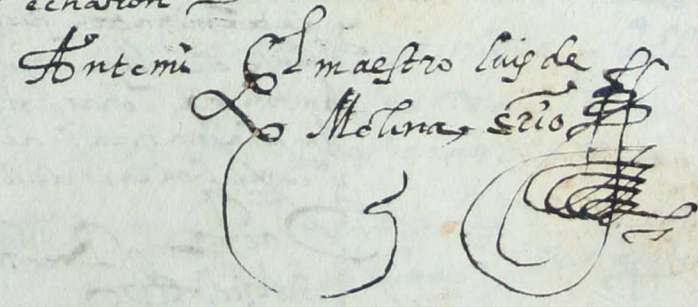 Antemi El maestro luis de
Molina srio